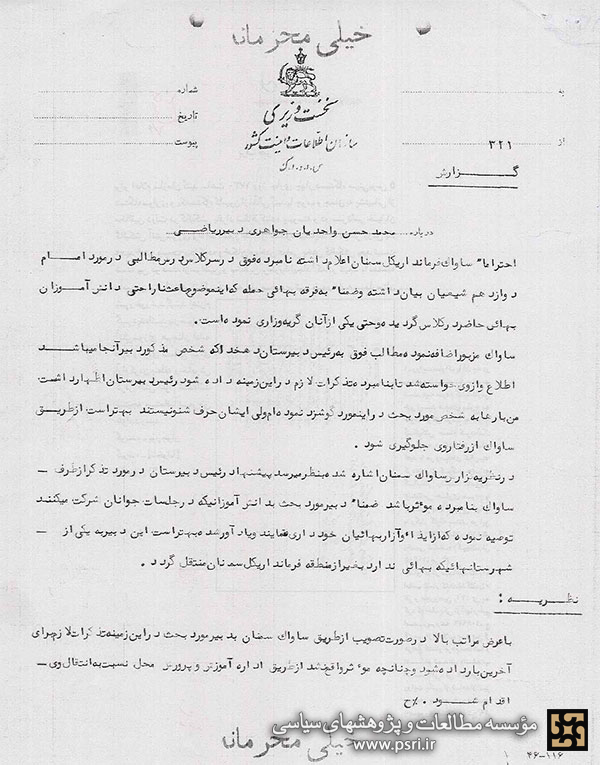 خیلی محرمانه
نخست وزیری
سازمان اطلاعات و امنیت کشور
س.ا.و.ا.ک
به
از ۳۲۱
شماره
تاریخ
پیوست
گزارش
درباره محمد حسن واحدیان جواهری دبیر ریاضی
احتراما" ساواک فرمانداریکل سمنان اعلام داشته نامبرده فوق در سر کلاس درس مطالبی در مورد امام
دوازدهم شیعیان بیان داشته وضمنا" به فرقه بهائی حمله که اینموضوع باعث ناراحتی دانش آموزان
بهائی حاضر در کلاس گردیده وحتی یکی از آنان گریه وزاری نموده است.
ساواک مزبور اضافه نموده مطالب فوق به رئیس دبیرستان دهخدا که شخص مذکور دبیر آنجا میباشد
اطلاع وازوی خواسته شد تا بنامبرده تذکرات لازم در این زمینه داده شود رئیس دبیرستان اظهار داشت
من بارها به شخص مورد بحث در اینمورد گوشزد نموده ام ولی ایشان حرف شنو نیستند بهتر است از طریق
ساواک از رفتار وی جلوگیری شود .
در نظریه گزارش ساواک سمنان اشاره شده بنظر میرسد پیشنهاد رئیس دبیرستان در مورد تذکر از طرف ــ
ساواک بنامبرده موثر باشد ضمنا" دبیر مورد بحث بدانش آموزانیکه در جلسات جوانان شرکت میکنند
توصیه نموده که از ایذاء وآزار بهائیان خودداری نمایند ویادآور شده بهتر است این دبیر به یکی از ــ
شهرستانهائیکه بهائی ندارد بغیر از منطقه فرمانداریکل سمنان منتقل گردد .
نظریه :
با عرض مراتب بالا در صورت تصویب از طریق ساواک سمنان به دبیر مورد بحث در این زمینه تذکرات لازم برای
آخرین بار داده شود وچنانچه موثر واقع نشد از طریق اداره آموزش و پرورش محل نسبت به انتقال وی ــ
اقدام شود . ح
خیلی محرمانه
مؤسسه مطالعات و پژوهشهای سیاسی
www.psri.ir
۴۶-۱۱۶